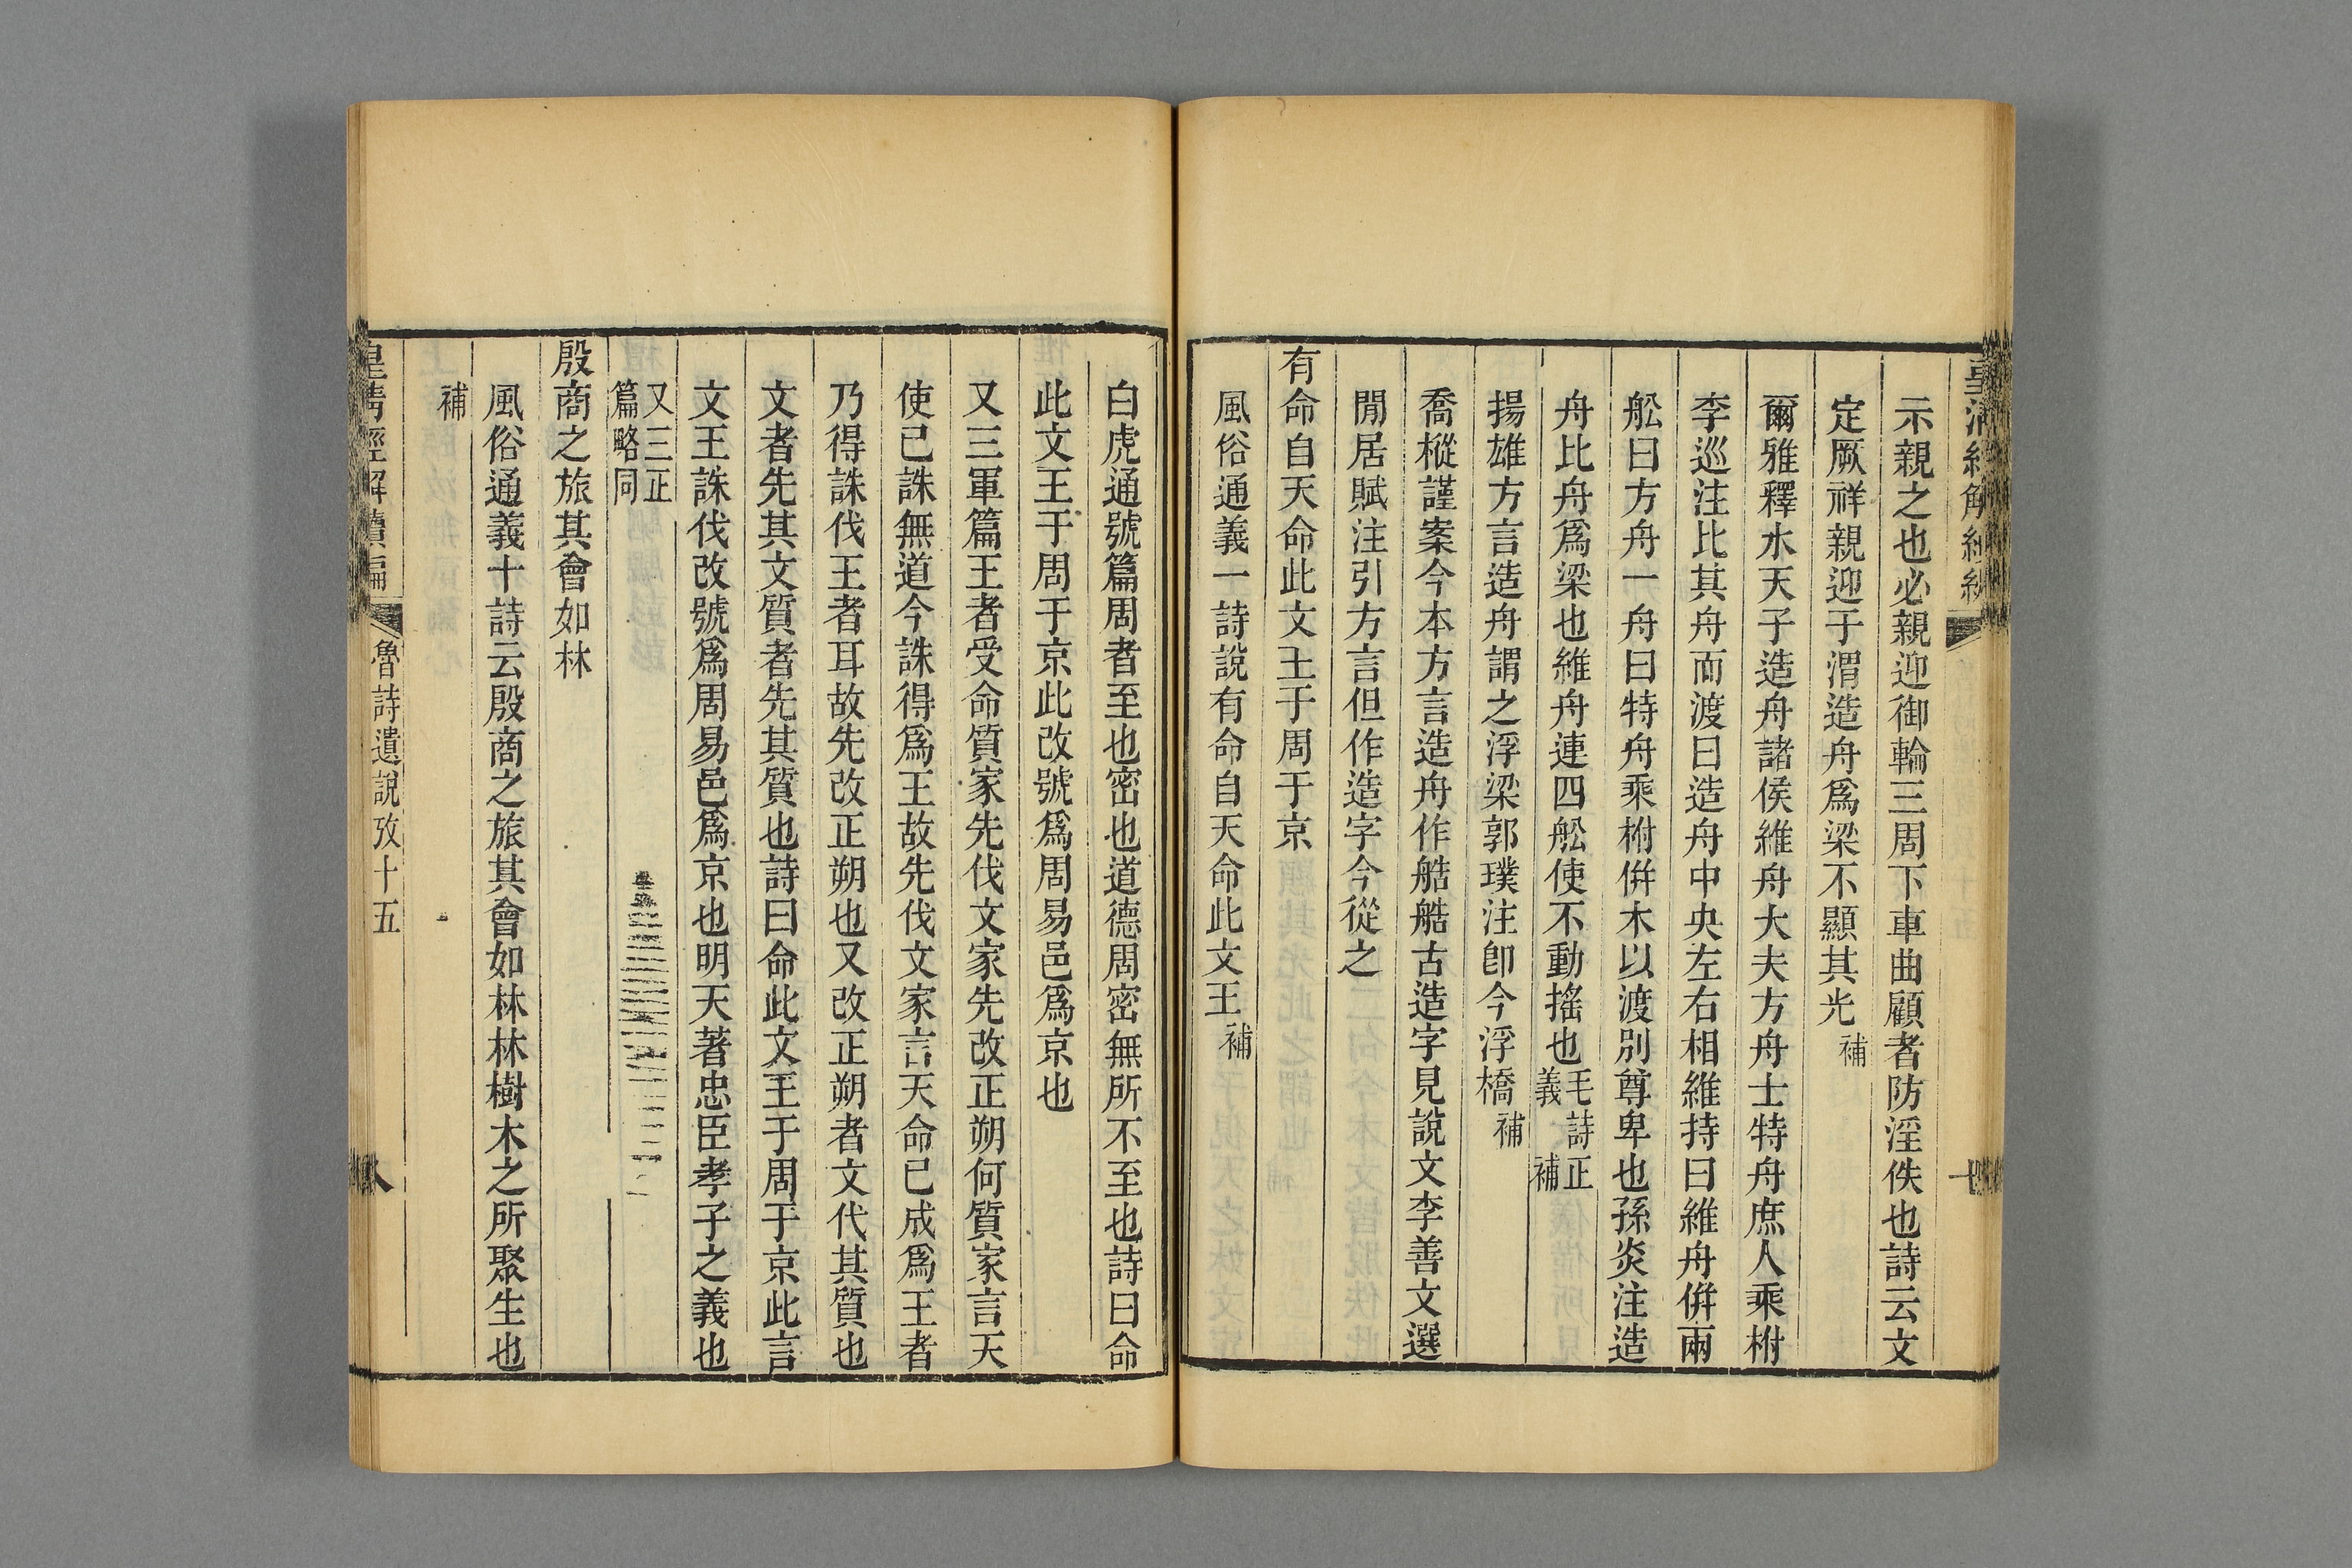 示親之也必親迎御輪三周下車曲顧者防淫佚也詩云文
定厥祥親迎于渭造舟爲梁不顯其光補
爾雅釋水天子造舟諸侯維舟大夫方舟士特舟庶人乘柎
李巡注比其舟而渡曰造舟中央左右相維持曰維舟併兩
舩曰方舟一舟曰特舟乘柎併木以渡別尊卑也孫炎注造
舟比舟爲梁也維舟連四舩使不動搖也毛詩正義補
揚雄方言造舟謂之浮梁郭璞注卽今浮橋補
喬樅謹案今本方言造舟作艁艁古造字見說文李善文選
閒居賦注引方言但作造字今從之
有命自天命此文王于周于京
風俗通義一詩說有命自天命此文王補
白虎通號篇周者至也密也道德周密無所不至也詩曰命
此文王于周于京此改號爲周易邑爲京也
又三軍篇王者受命質家先伐文家先改正朔何質家言天
使已誅無道今誅得爲王故先伐文家言天命已成爲王者
乃得誅伐王者耳故先改正朔也又改正朔者文代其質也
文者先其文質者先其質也詩曰命此文王于周于京此言
文王誅伐改號爲周易邑爲京也明天著忠臣孝子之義也
又三正
篇略同
殷商之旅其會如林
風俗通義十詩云殷商之旅其會如林林樹木之所聚生也
補
皇清經解續編 魯詩遺說攷十五 八